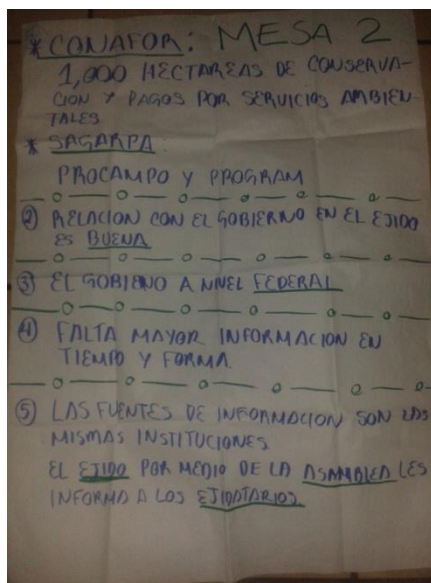 * CONAFOR: MESA 2
1,000 HECTAREAS DE CONSERVA-
CION Y PAGOS POR SERVICIOS AMBIEN-
TALES
* SAGARPA:
PROCAMPO Y PROGRAM
② RELACION CON EL GOBIERNO EN EL EJIDO
ES BUENA
③ EL GOBIENO A NIVEL FEDERAL
④ FALTA MAYOR INFORMACION EN
TIEMPO Y FORMA.
⑤ LAS FUENTES DE INFORMACION SON LAS
MISMAS INSTITUCIONES
EL EJIDO POR MEDIO DE LA ASAMBLEA LES
INFORMA A LOS EJIDATARIOS